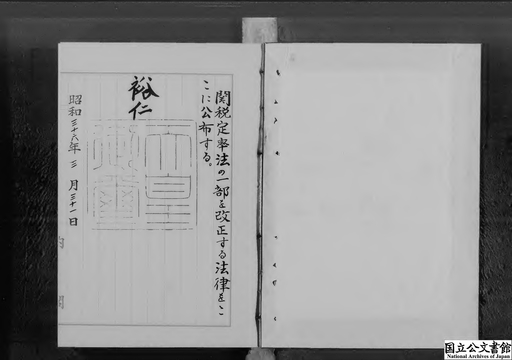 関税定率法の一部を改正する法律をこ
こに公布する。
裕仁
天皇
御璽
昭和三十六年三月三十一日
国立公文書館
National Archives of Japan